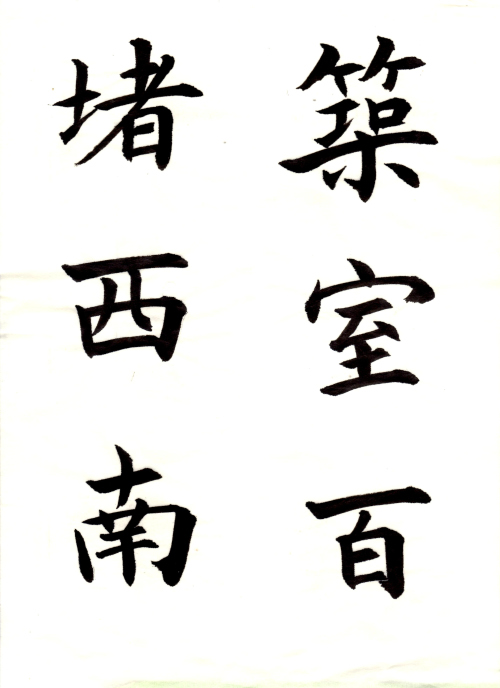 築室百
堵西南